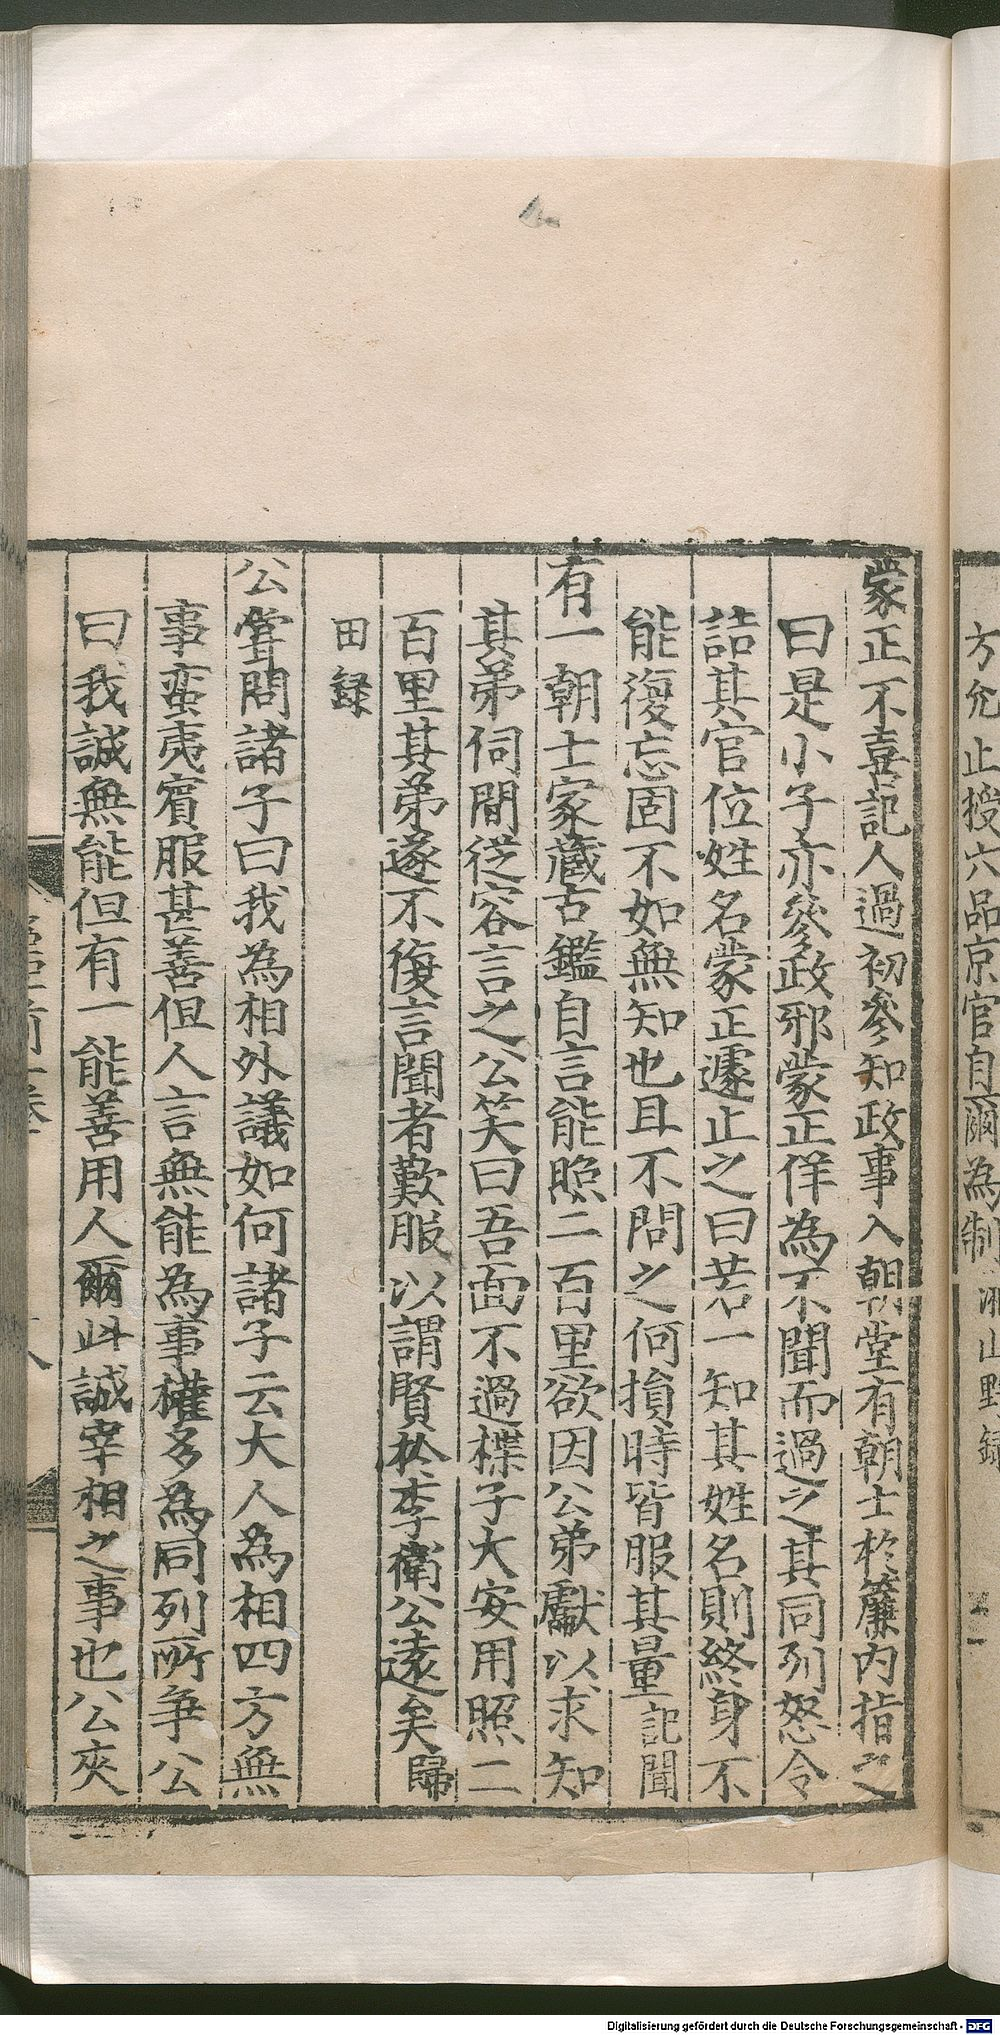 方允止授六品京官自爾為制湘山野録
蒙正不喜記人過初參知政事入朝堂有朝士於簾內指之
曰是小子亦參政邪蒙正佯為不聞而過之其同列怒令
詰其官位姓名蒙正遽止之曰若一知其姓名則終身不
能復忘固不如無知也且不問之何損時皆服其量記聞
有一朝士家藏古鑑自言能照二百里欲因公弟獻以求知
其弟伺間從容言之公笑曰吾面不過楪子大安用照二
百里其弟遂不復言聞者歎服以謂賢於李衛公遠矣歸
田録
公嘗問諸子曰我為相外議如何諸子云大人為相四方無
事蛮夷賓服甚善但人言無能為事權多為同列所爭公
曰我誠無能但有一能善用人爾此誠宰相之事也公夾
八
Digitalisierung gefördert durch die Deutsche Forschungsgemeinschaft - DFG